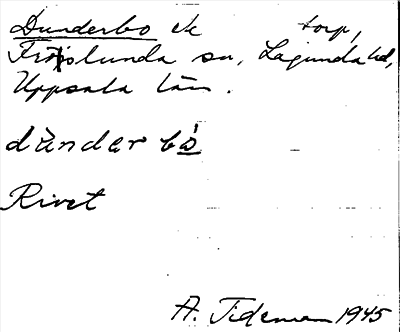 Dunderbo etc torp,
Fröslunda sn, Lagunda hd,
Uppsala län.
dùndar bó
Rivet
A. Tideman 1945